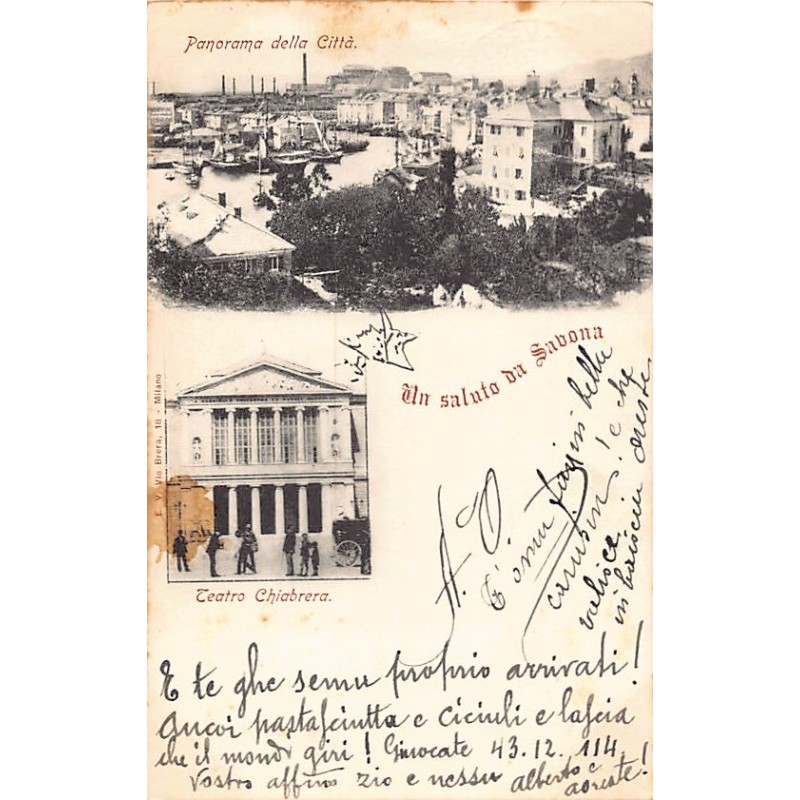 Panorama della Città.
Un saluto da Savona
E. V. Via Brera, 18 - Milano
Teatro Chiabrera.
A. O
bella
che
valisce
in
E te ghe semu proprio arrivati!
Ancoi pastasciutta e ciciuli e lascia
che il mondo giri! Giuocate 43. 12. 114.
Vostro affmo zio e nessu alberto e
aoreste!